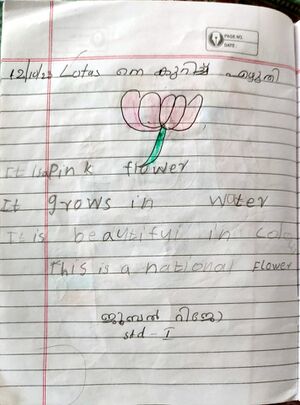 PAGE NO.
DATE:
12/10/23 Lotus നെ കുറിച്ച് എഴുതി
It is a Pink flower
It grows in water
It is beautiful in colo
This is a national Flower
ജുബൽ റിജോ
std - I